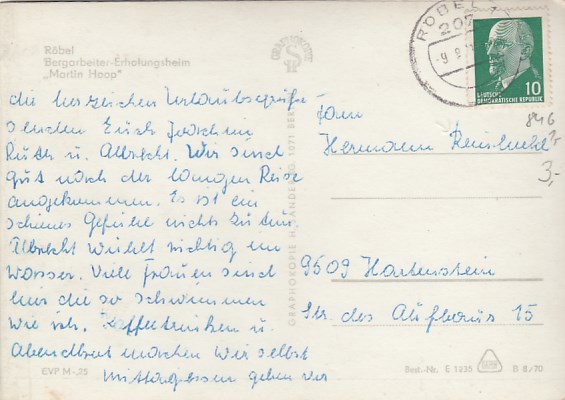 Röbel
Bergarbeiter-Erholungsheim
„Martin Hoop“
die herzlichen Urlaubsgrüße
senden Euch Joachim
Ruth u. Albrecht. Wir sind
gut nach der langen Reise
angekommen. Es ist ein
schönes Gefühl nichts zu tun,
Albrecht wühlt richtig im
Wasser. Viele Frauen sind
hier die so schwimmen
wie ich. Kaffeetrinken u.
Abendbrot machen wir selbst
Mittagessen gehen wir
EVP M -,25
GRAPHOKOPIE H. SANDER KG, 1071 BERLIN
RÖBEL
DEUTSCHE
DEMOKRATISCHE REPUBLIK
10
846
3,-
Fam
Hermann
9509 Hartenstein
Str. des Aufbaus 15
Best.-Nr. E 1335
B 8/70